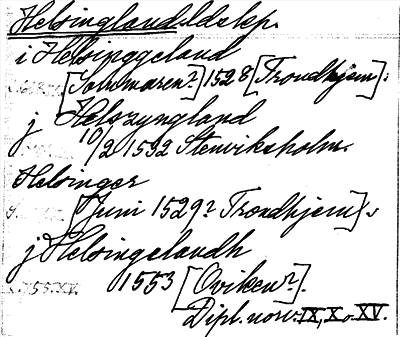 Helsingland. ldskp.
i Helsinggeland
[Sommaren?] 1528 [Trondhjem];
j Helszyngland
10/2 1532 Stenviksholm.
Helsinger
[Juni 1529? Trondhjem];
j Helsingelandh
1553 [Oviken?].
Dipl. norv. IX, X o. XV.